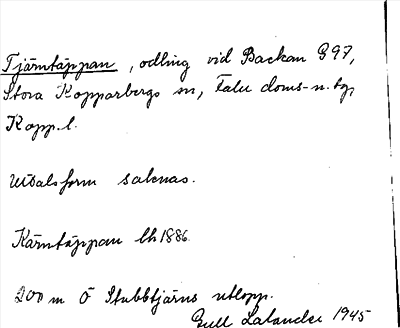 Tjärntäppan, odling vid Backan G97,
Stora Kopparbergs sn, Falu doms-n. tg,
Kopp. l.
Uttalsform saknas.
Kärntäppan lh 1886.
200 m Ö Stubbtjärns utlopp.
Gull Lalander 1945